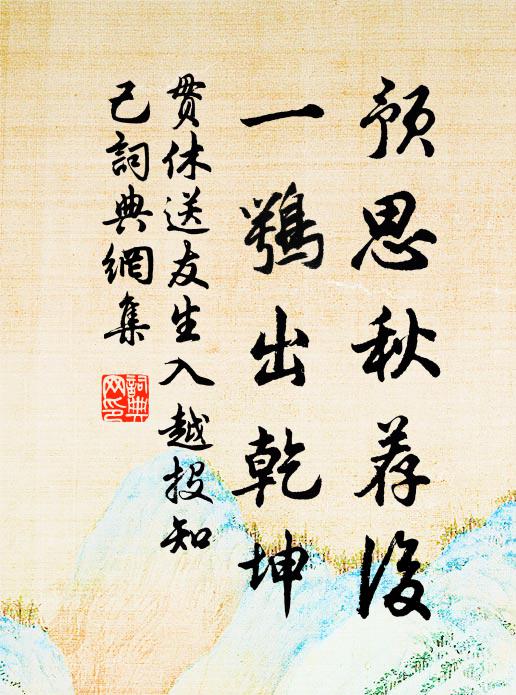 预思秋荐後
一鶚出乾坤
贯休送友生入越投知
己詞典網集
詞典网印